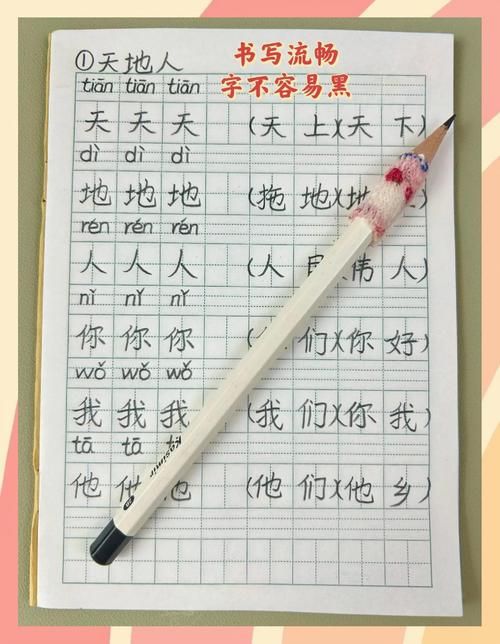 书写流畅
字不容易黑
①天地人
tiān tiān tiān
天 天 天 (天 上)(天 下)
dì dì dì
地 地 地 (拖 地)(地
rén rén rén
人 人 人 (人 民)(伟 人)
nǐ nǐ nǐ
你 你 你 们)(你 好)
wǒ wǒ wǒ
我 我 我 (我 们)(你 我)
tā tā
他 他 他 (他 们)(他 乡)